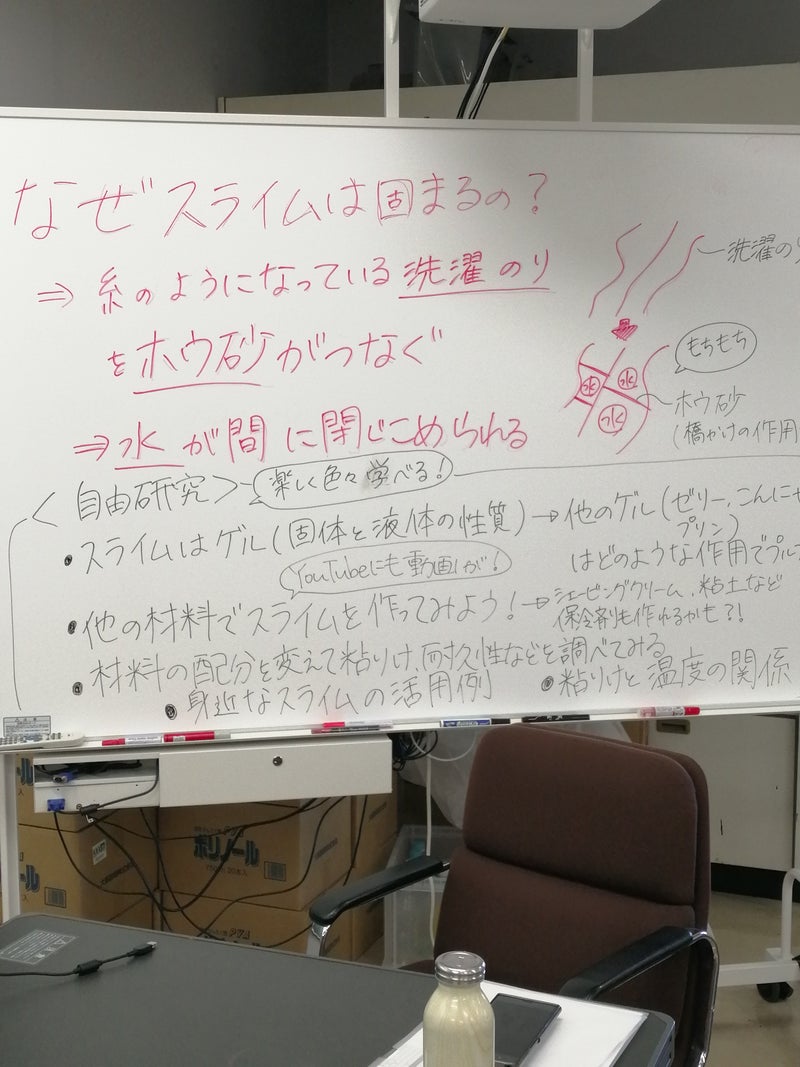 なぜスライムは固まるの?
⇒ 糸のようになっている洗濯のり
をホウ砂がつなぐ
⇒水が間に閉じこめられる
洗濯のり
もちもち
水 水
水
ホウ砂
(橋かけの作用
<自由研究>
楽しく色々学べる!
・スライムはゲル(固体と液体の性質)→他のゲル(ゼリー、こんにゃ
プリン)
はどのような作用でプル
YouTubeにも動画が!
・他の材料でスライムを作ってみよう!→シェービングクリーム、粘土など
保冷剤も作れるかも?!
・材料の配分を変えて粘りけ、耐久性などを調べてみる
・身近なスライムの活用例
・粘りけと温度の関係
ポリノール
20本入